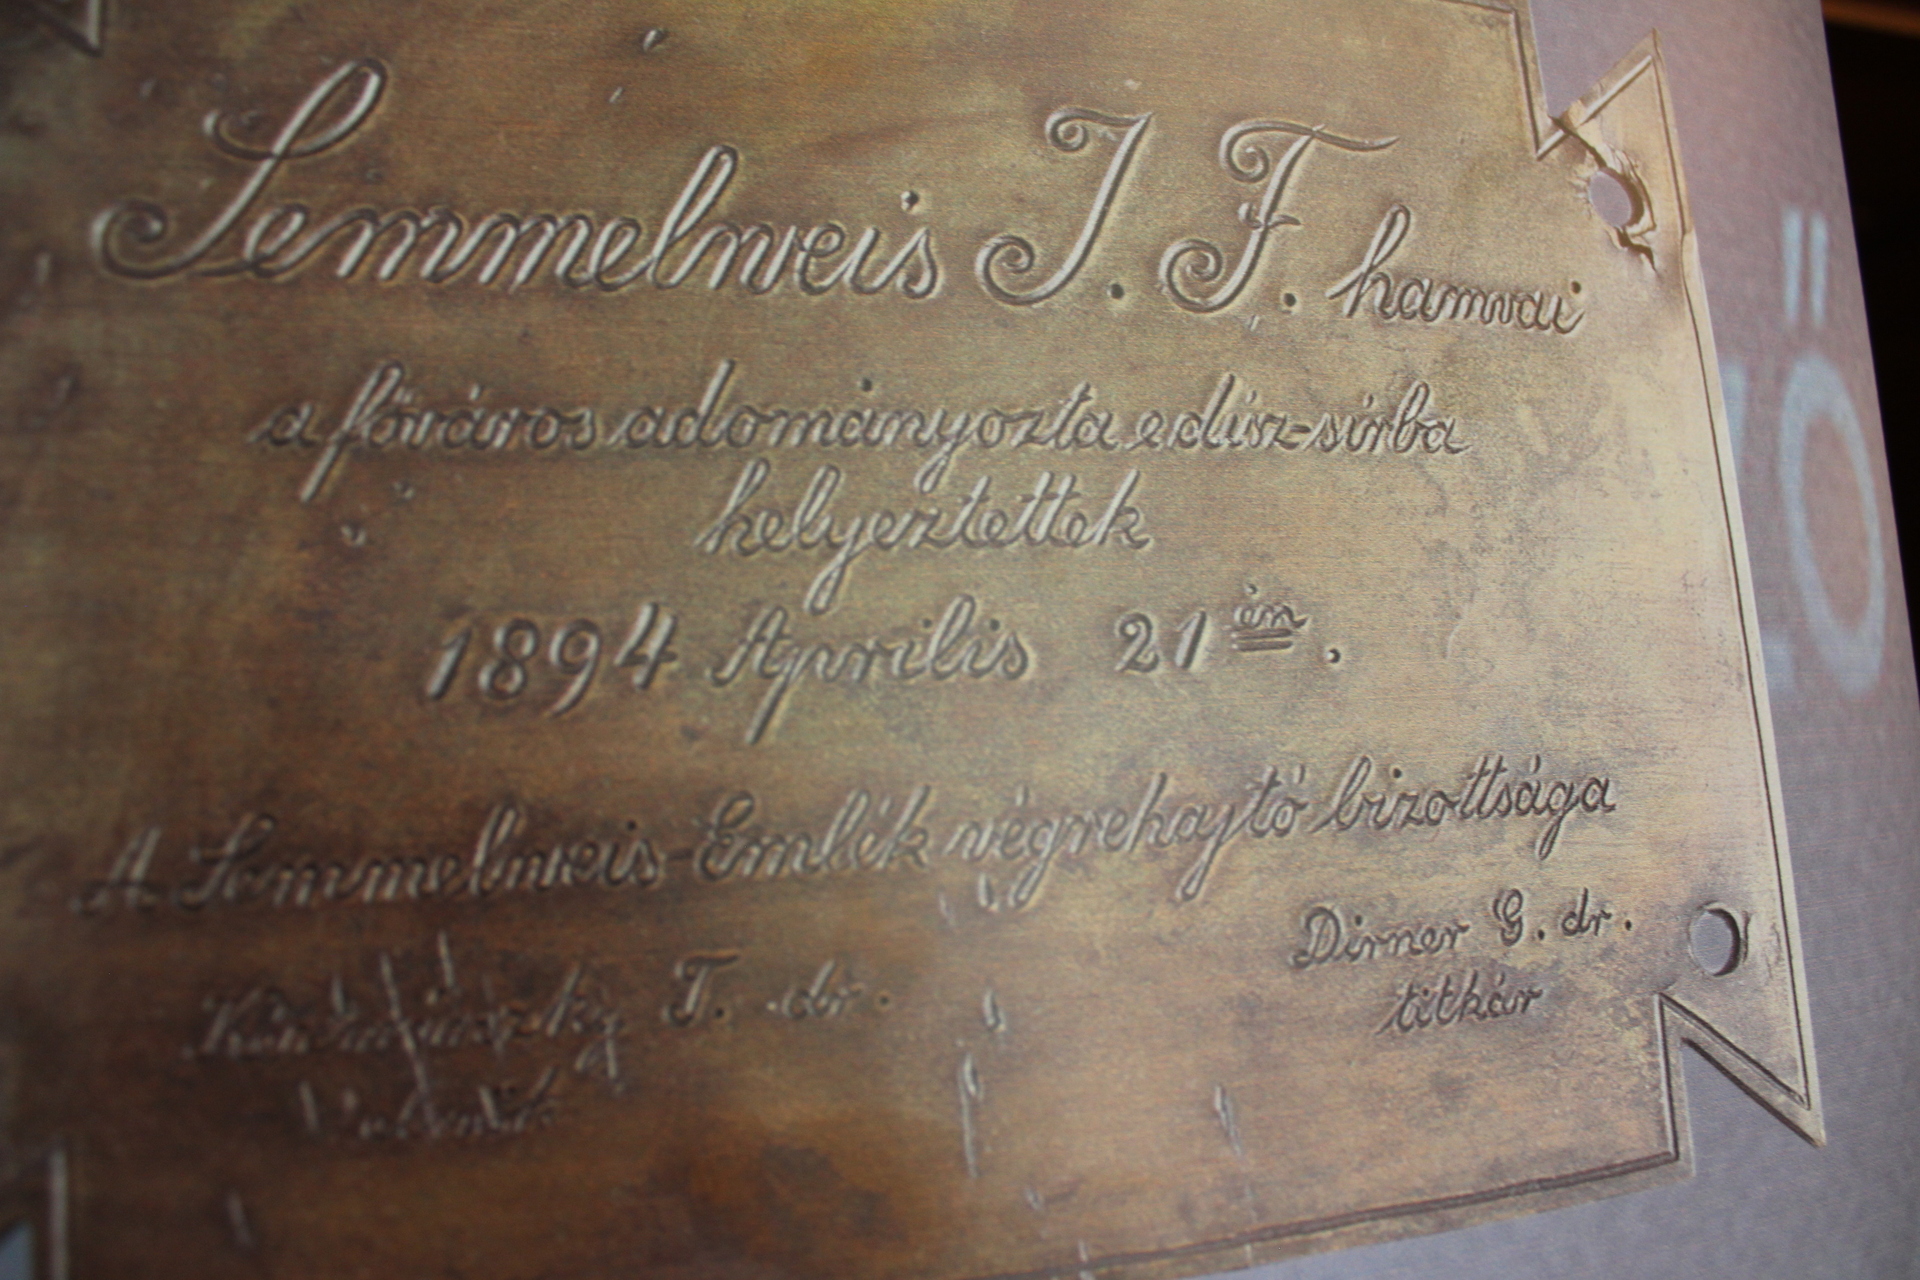 Semmelweis J. F. hamvai
a főváros adományozta e dísz-sírba
helyeztettek
1894 Április 21 én.
A Semmelweis-Emlék végrehajtó bizottsága
Dirner G. dr.
titkár
T. dr.
elnök